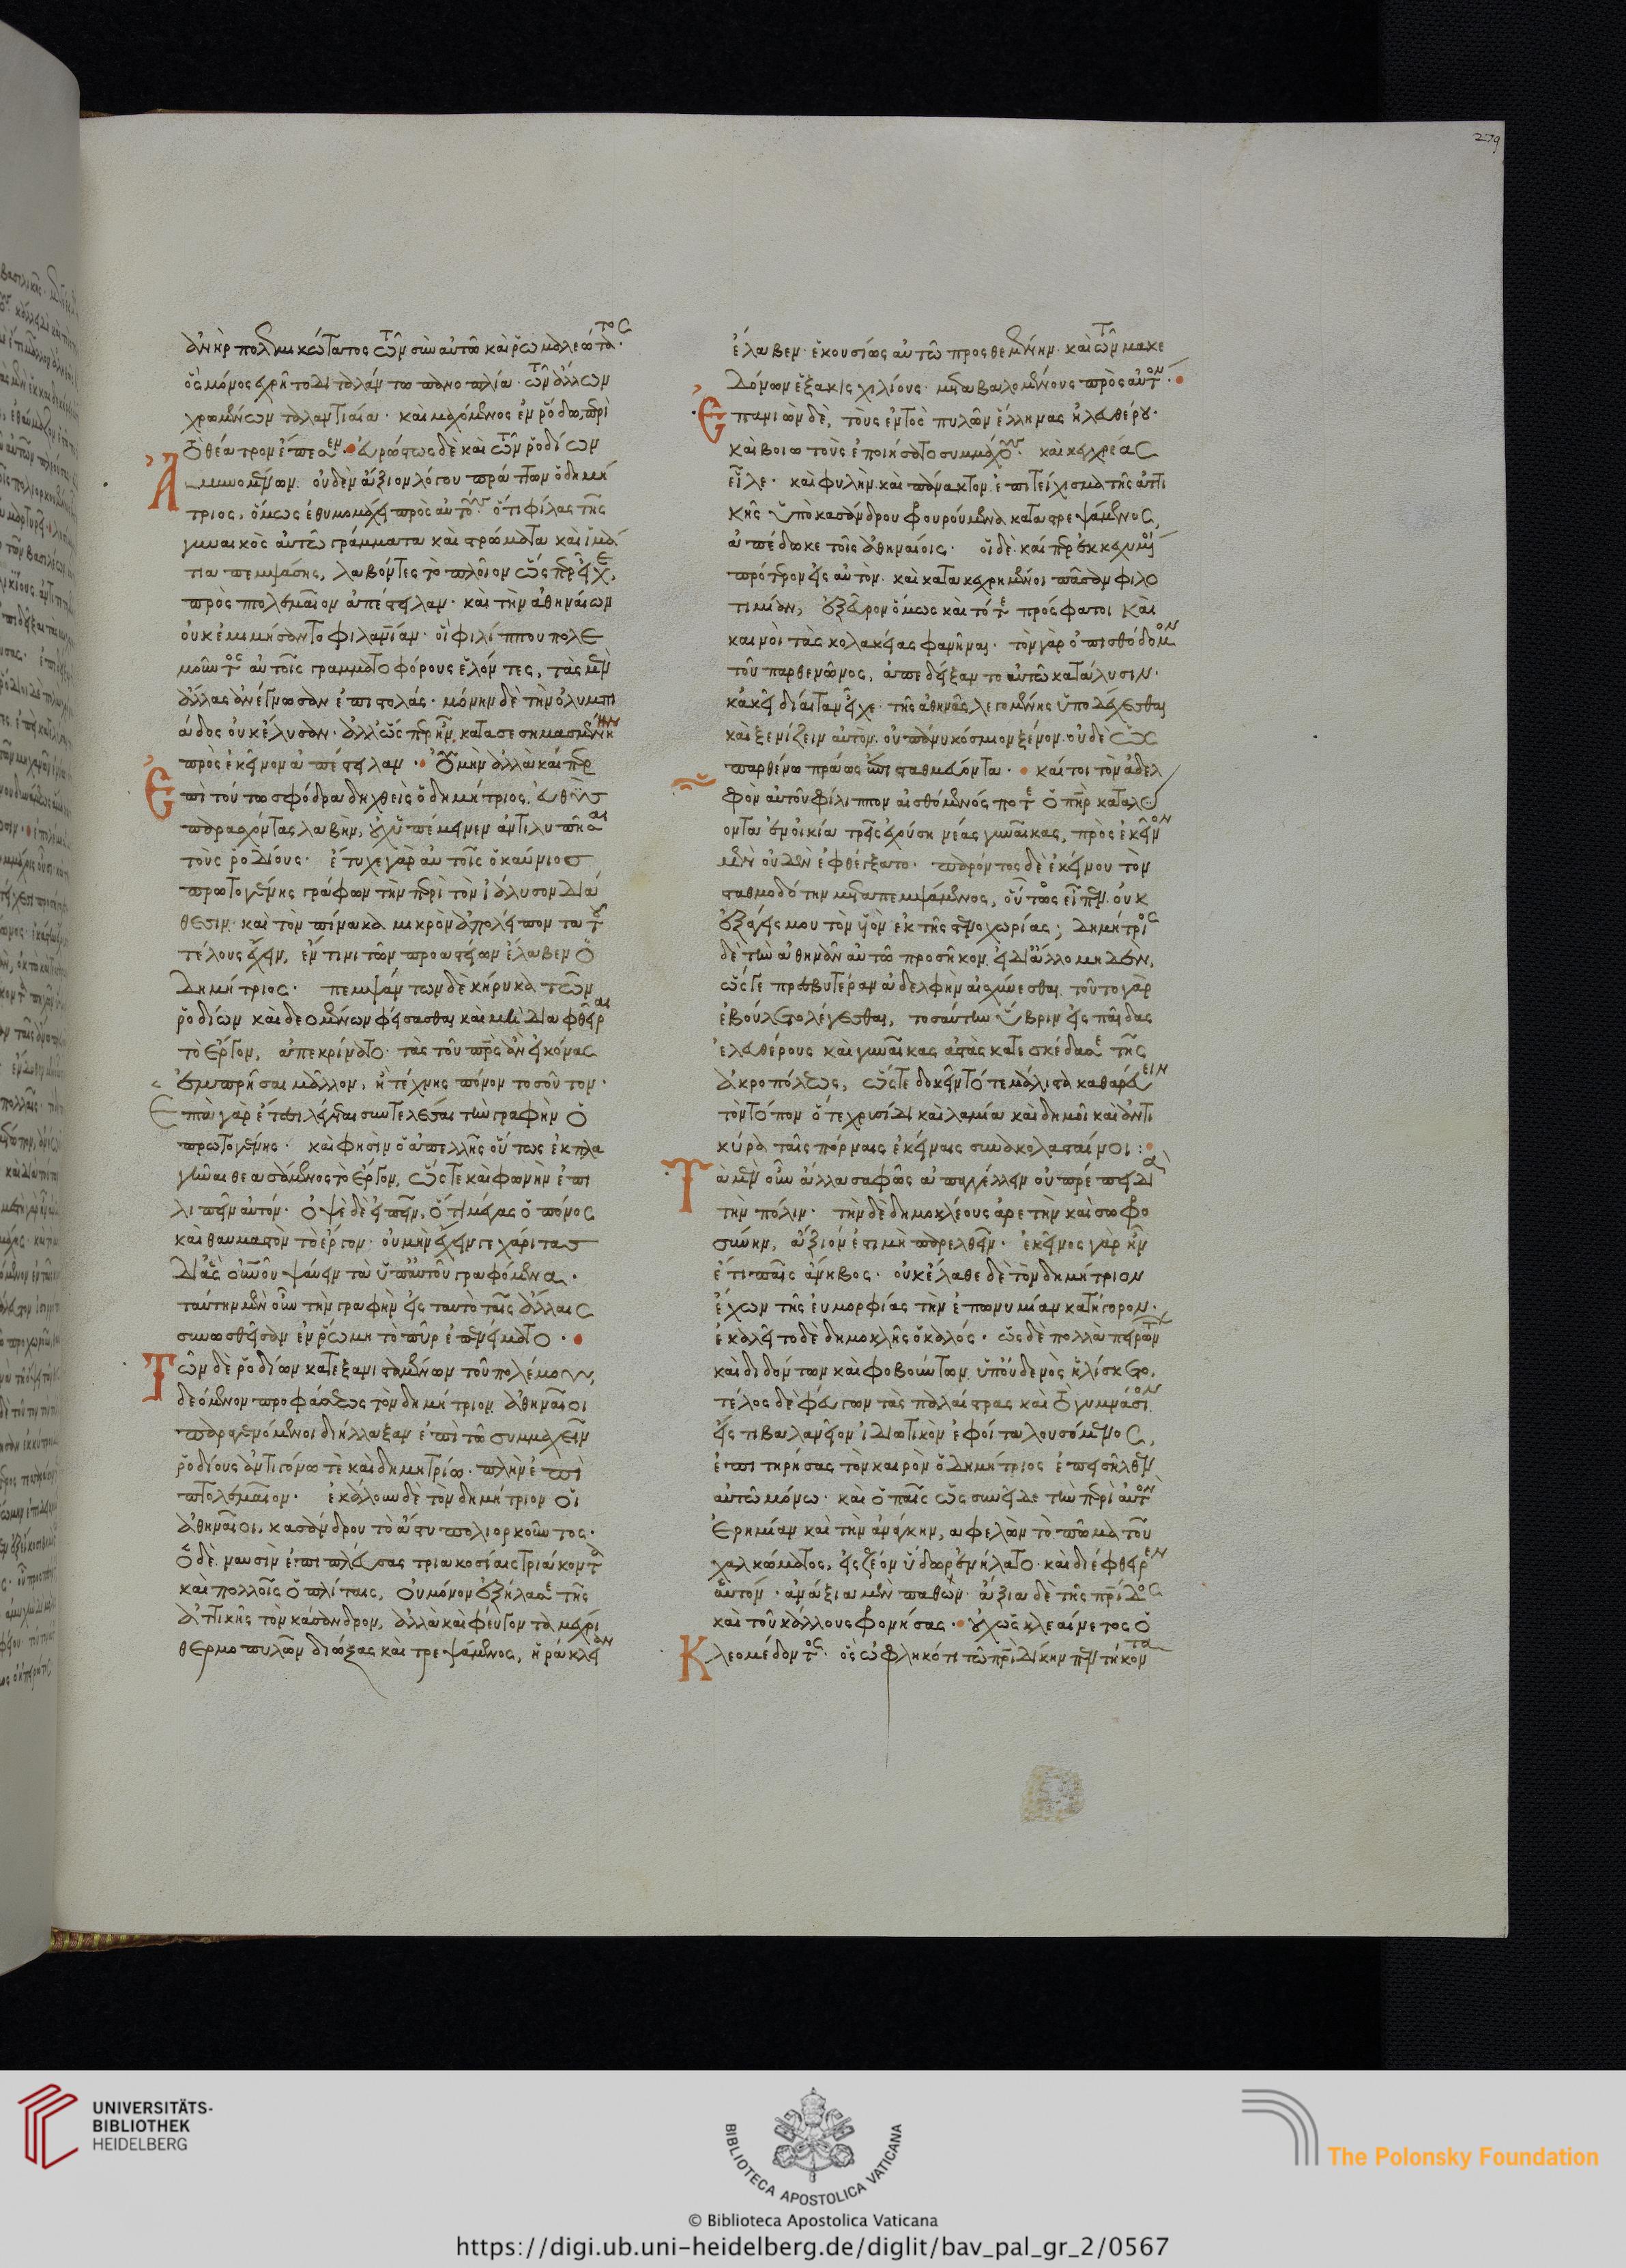 279
ἀνὴρ πολεμικώτατος τῶν σὺν αὐτῶ καὶ ῥωμαλεώτατος·
ὃς μόνος ἐχρῆτο διταλάντω πανοπλία· τῶν ἄλλων
χρωμένων ταλαντιαία· καὶ μαχόμενος ἐν ῥόδω, περὶ
τὸ θέατρον ἔπεσεν· εὐρώστως δὲ καὶ τῶν ῥοδίων
ἀμυνομένων. οὐδὲν ἄξιον λόγου πράττων ὁ δημή
τριος, ὅμως ἐθυμομάχει πρὸς αὐτούς· ὅτι φίλας τῆς
γυναικὸς αὐτῶ γράμματα καὶ στρώματα καὶ ἱμά
τια πεμψάσης, λαβόντες τὸ πλοῖον ὥσπερ εἶχε,
πρὸς πτολεμαῖον ἀπέστειλαν· καὶ τὴν ἀθηναίων
οὐκ ἐμιμήσαντο φιλανθρωπίαν· οἳ φιλίππου πολε
μοῦντος αὐτοῖς γραμματοφόρους ἑλόντες, τὰς μὲν
ἄλλας ἀνέγνωσαν ἐπιστολάς· μόνην δὲ τὴν ὀλυμπι
άδος οὐκ ἔλυσαν· ἀλλ' ὥσπερ ἦν κατασεσημασμένην
πρὸς ἐκεῖνον ἀπέστειλαν· οὐ μὴν ἀλλὰ καίπερ
ἐπὶ τούτω σφόδρα δηχθεὶς ὁ δημήτριος. εὐθὺς
παρασχόντας λαβὴν, οὐχ ὑπέμεινεν ἀντιλυπῆσαι
τοὺς ῥοδίους· ἔτυχε γὰρ αὐτοῖς ὁ καύνιος
πρωτογένης γράφων τὴν περὶ τὸν ἰάλυσον διά
θεσιν· καὶ τὸν πίνακα μικρὸν ἀπολείποντα τοῦ
τέλους ἔχειν, ἔν τινι τῶν προαστείων ἔλαβεν ὁ
δημήτριος· πεμψάντων δὲ κήρυκα τῶν
ῥοδίων καὶ δεομένων φείσασθαι καὶ μὴ διαφθεῖραι
τὸ ἔργον, ἀπεκρίνατο· τὰς τοῦ πατρὸς ἂν εἰκόνας
ἐμπρῆσαι μᾶλλον, ἢ τέχνης πόνον τοσοῦτον·
ἑπτὰ γὰρ ἔτεσι λέγεται συντελέσαι τὴν γραφὴν ὁ
πρωτογένης· καὶ φησὶν ὁ ἀπελλῆς οὕτως ἐκπλα
γῆναι θεασάμενος τὸ ἔργον, ὥστε καὶ φωνὴν ἐπι
λιπεῖν αὐτόν· ὀψὲ δὲ εἰπεῖν, ὅτι μέγας ὁ πόνος
καὶ θαυμαστὸν τὸ ἔργον· οὐ μὴν ἔχειν γε χάριτας
δι' ἃς οὐρανοῦ ψαύειν τὰ ὑπ' αὐτοῦ γραφόμενα·
ταύτην μὲν οὖν τὴν γραφὴν εἰς ταυτὸ ταῖς ἄλλαις
συνωσθεῖσαν ἐν ῥώμη τὸ πῦρ ἐπενείματο·
τῶν δὲ ῥοδίων κατεξανισταμένων τοῦ πολέμου,
δεόμενον προφάσεως τὸν δημήτριον ἀθηναῖοι
παραγενόμενοι διήλλαξαν ἐπὶ τῶ συμμαχεῖν
ῥοδίους ἀντιγόνω τὲ καὶ δημητρίω· πλὴν ἐπὶ
πτολεμαῖον· ἐκάλουν δὲ τὸν δημήτριον οἱ
ἀθηναῖοι, κασάνδρου τὸ ἄστυ πολιορκοῦντος·
ὁ δὲ ναυσὶν ἐπιπλεύσας τριακοσίαις τριάκοντα
καὶ πολλοῖς ὁπλίταις, οὐ μόνον ἐξήλασε τῆς
ἀττικῆς τὸν κάσανδρον, ἀλλὰ καὶ φεύγοντα μέχρι
θερμοπυλῶν διώξας καὶ τρεψάμενος, ἡράκλειαν
ἔλαβεν· ἑκουσίως αὐτῶ προσθεμένην· καὶ τῶν μακε
δόνων ἑξακισχιλίους· μεταβαλομένους πρὸς αὐτόν·
ἐπανιὼν δὲ, τοὺς ἐντὸς πυλῶν ἕλληνας ἠλευθέρου·
καὶ βοιωτοὺς ἐποιήσατο συμμάχους· καὶ κεγχρέας
εἷλε· καὶ φυλὴν καὶ πάνακτον. ἐπιτείχισμα τῆς ἀττι
κῆς ὑπὸ κασάνδρου φρουρούμενα καταστρεψάμενος,
ἀπέδωκε τοῖς ἀθηναίοις· οἱ δὲ καίπερ ἐκκεχυμένοι
πρότερον εἰς αὐτὸν· καὶ κατακεχρημένοι πᾶσαν φιλο
τιμίαν, ἐξεῦρον ὅμως καὶ τότε πρόσφατοι καὶ
καινοὶ τὰς κολακείας φανῆναι· τὸν γὰρ ὀπισθόδομον
τοῦ παρθενῶνος, ἀπέδειξαν τὸ αὐτῶ κατάλυσιν·
κἀκεῖ δίαιταν εἶχε· τῆς ἀθηνᾶς λεγομένης ὑποδέχεσθαι
καὶ ξενίζειν αὐτὸν. οὐ πάνυ κόσμιον ξένον· οὐδὲ ὡς
παρθένω πράως ἐπισταθμεύοντα· καίτοι τὸν ἀδελ
φὸν αὐτοῦ φίλιππον αἰσθόμενός ποτε ὁ πατὴρ καταλύ
οντα ἐν οἰκία τρεῖς ἐχούση νέας γυναῖκας, πρὸς ἐκεῖνον
μὲν οὐδὲν ἐφθέγξατο· παρόντος δὲ ἐκείνου τὸν
σταθμοδότην μεταπεμψάμενος, οὗτος εἶπεν· οὐκ
ἐξάξεις μου τὸν υἱὸν ἐκ τῆς στενοχωρίας; δημήτριος
δὲ τὴν ἀθηνᾶν αὐτῶ προσῆκον. εἰ δι' ἄλλο μηδὲν,
ὥς γε πρεσβυτέραν ἀδελφὴν αἰσχύνεσθαι. τοῦτο γὰρ
ἐβούλετο λέγεσθαι, τοσαύτην ὕβριν εἰς παῖδας
ἐλευθέρους καὶ γυναῖκας ἀστὰς κατεσκέδασε τῆς
ἀκροπόλεως, ὥστε δοκεῖν τότε μάλιστα καθαρεύειν
τὸν τόπον ὅτε χρυσίδι καὶ λαμία καὶ δημοῖ καὶ ἀντι
κύρα ταῖς πόρναις ἐκείναις συνακολασταίνοι:
τὰ μὲν οὖν ἄλλα σαφῶς ἀπαγγέλλειν οὐ πρέπει διὰ
τὴν πόλιν· τὴν δὲ δημοκλέους ἀρετὴν καὶ σωφρο
σύνην, ἄξιόν ἐστι μὴ παρελθεῖν· ἐκεῖνος γὰρ ἦν
ἔτι παῖς ἄνηβος· οὐκ ἔλαθε δὲ τὸν δημήτριον
ἔχων τῆς εὐμορφίας τὴν ἐπωνυμίαν κατήγορον·
ἐκαλεῖτο δὲ δημοκλῆς ὁ καλός· ὡς δὲ πολλὰ πειρώντων
καὶ διδόντων καὶ φοβούντων. ὑπ' οὐδενὸς ἡλίσκετο,
τέλος δὲ φεύγων τὰς παλαίστρας καὶ τὸ γυμνάσιον
εἴς τι βαλανεῖον ἰδιωτικὸν ἐφοίτα λουσόμενος,
ἐπιτηρήσας τὸν καιρὸν ὁ δημήτριος ἐπεισῆλθεν
αὐτῶ μόνω· καὶ ὁ παῖς ὡς συνεῖδε τὴν περὶ αὐτὸν
ἐρημίαν καὶ τὴν ἀνάγκην, ἀφελὼν τὸ πῶμα τοῦ
χαλκώματος, εἰς ζέον ὕδωρ ἐνήλατο· καὶ διέφθειρεν
αὑτόν· ἀνάξια μὲν παθὼν· ἄξια δὲ τῆς πατρίδος
καὶ τοῦ κάλλους φρονήσας· οὐχ ὡς κλεαίνετος ὁ
κλεομέδοντος· ὃς ὠφληκότι τῶ πατρὶ δίκην πεντήκοντα
UNIVERSITÄTS-
BIBLIOTHEK
HEIDELBERG
BIBLIOTECA APOSTOLICA VATICANA
The Polonsky Foundation
© Biblioteca Apostolica Vaticana
https://digi.ub.uni-heidelberg.de/diglit/bav_pal_gr_2/0567